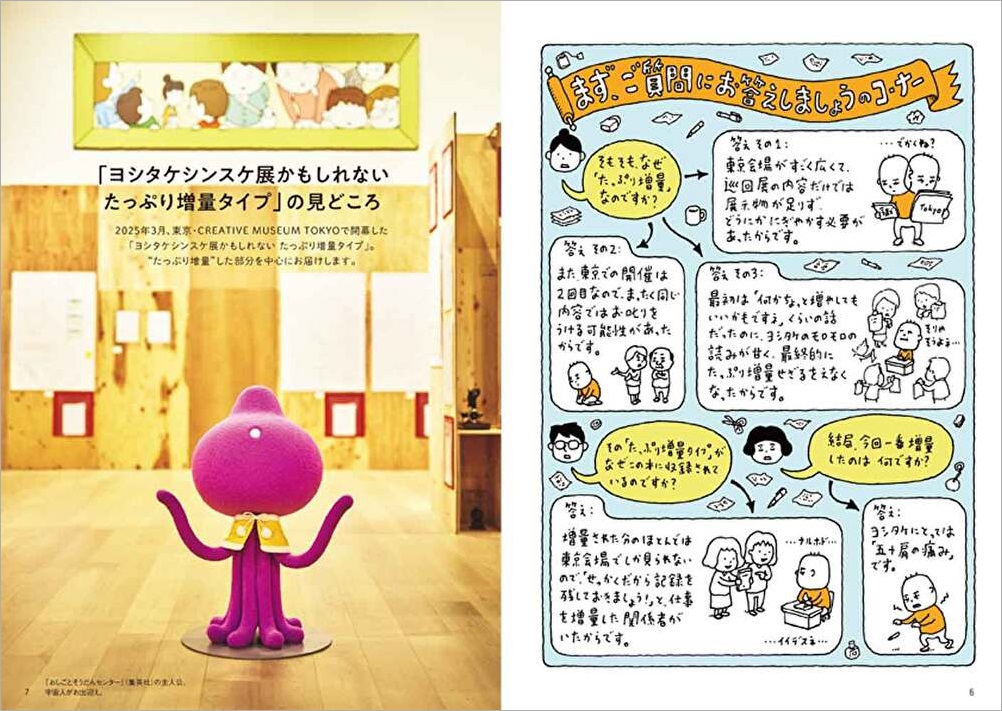 「ヨシタケシンスケ展かもしれない
たっぷり増量タイプ」の見どころ
2025年3月、東京・CREATIVE MUSEUM TOKYOで開幕した
「ヨシタケシンスケ展かもしれない たっぷり増量タイプ」。
“たっぷり増量”した部分を中心にお届けします。
『おしごとそうだんセンター』（集英社）の主人公、
宇宙人がお出迎え。
7
まず、ご質問にお答えしましょうのコーナー
そもそも、なぜ
「たっぷり増量」
なのですか？
答え その1：
東京会場がすごく広くて、
巡回展の内容だけでは
展示物が足りず、
どうにかにぎやかす必要が
あったからです。
…でかくね？
Tokyo
答え その2：
また、東京での開催は
2回目なので、まったく同じ
内容ではお叱りを
うける可能性があった
からです。
答え その3：
最初は「何かちょっと増やしても
いいかもですネ」くらいの話
だったのに、ヨシタケのモロモロの
読みが甘く、最終的に
たっぷり増量せざるをえなく
なったからです。
そりゃ
そうよね…
その「たっぷり増量タイプ」が
なぜこの本に収録されて
いるのですか？
答え：
増量された分のほとんどは
東京会場でしか見られない
ので、「せっかくだから記録を
残しておきましょう！」と、仕事
を増量した関係者が
いたからです。
…ナルホド…
…イイデスネ…
結局、今回一番増量
したのは 何ですか？
答え：
ヨシタケにとっては
「五十肩の痛み」
です。
6